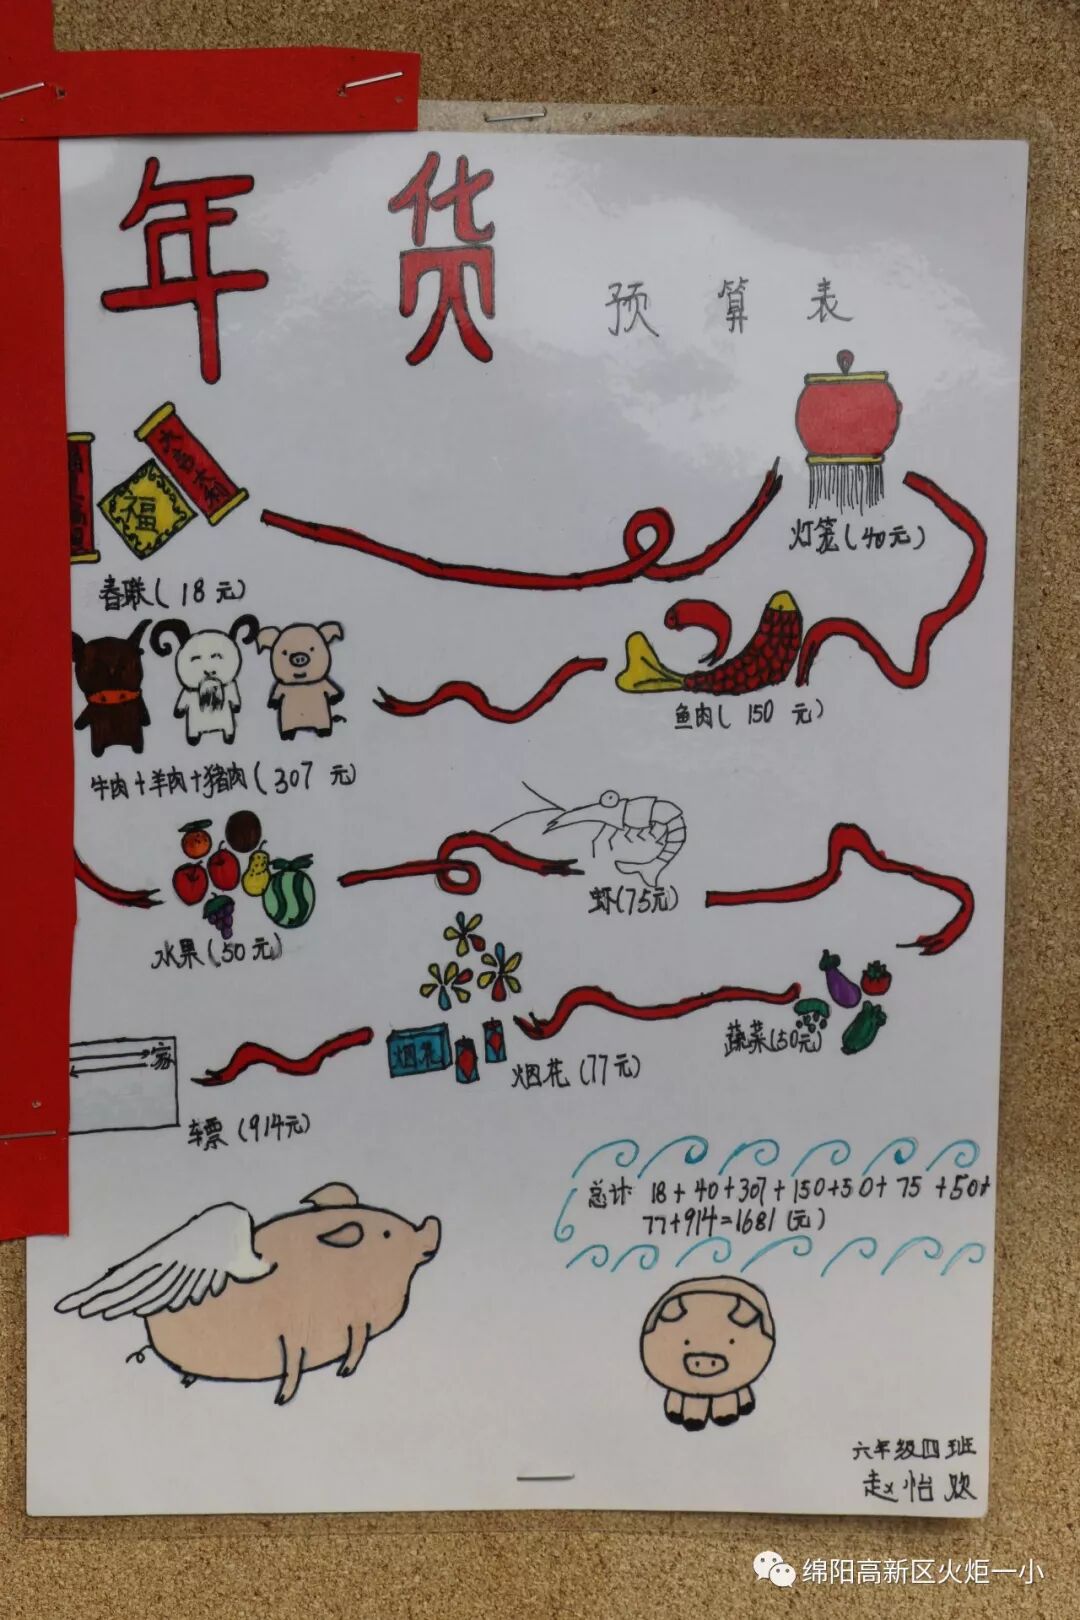 年货
预算表
大吉大利
福
春联(18元)
灯笼(40元)
鱼肉(150元)
牛肉+羊肉+猪肉(307元)
水果(50元)
虾(75元)
蔬菜(50元)
烟花
烟花(77元)
家
车票(914元)
总计 18+40+307+150+50+75+50+
77+914=1681(元)
六年级四班
赵怡欢
绵阳高新区火炬一小